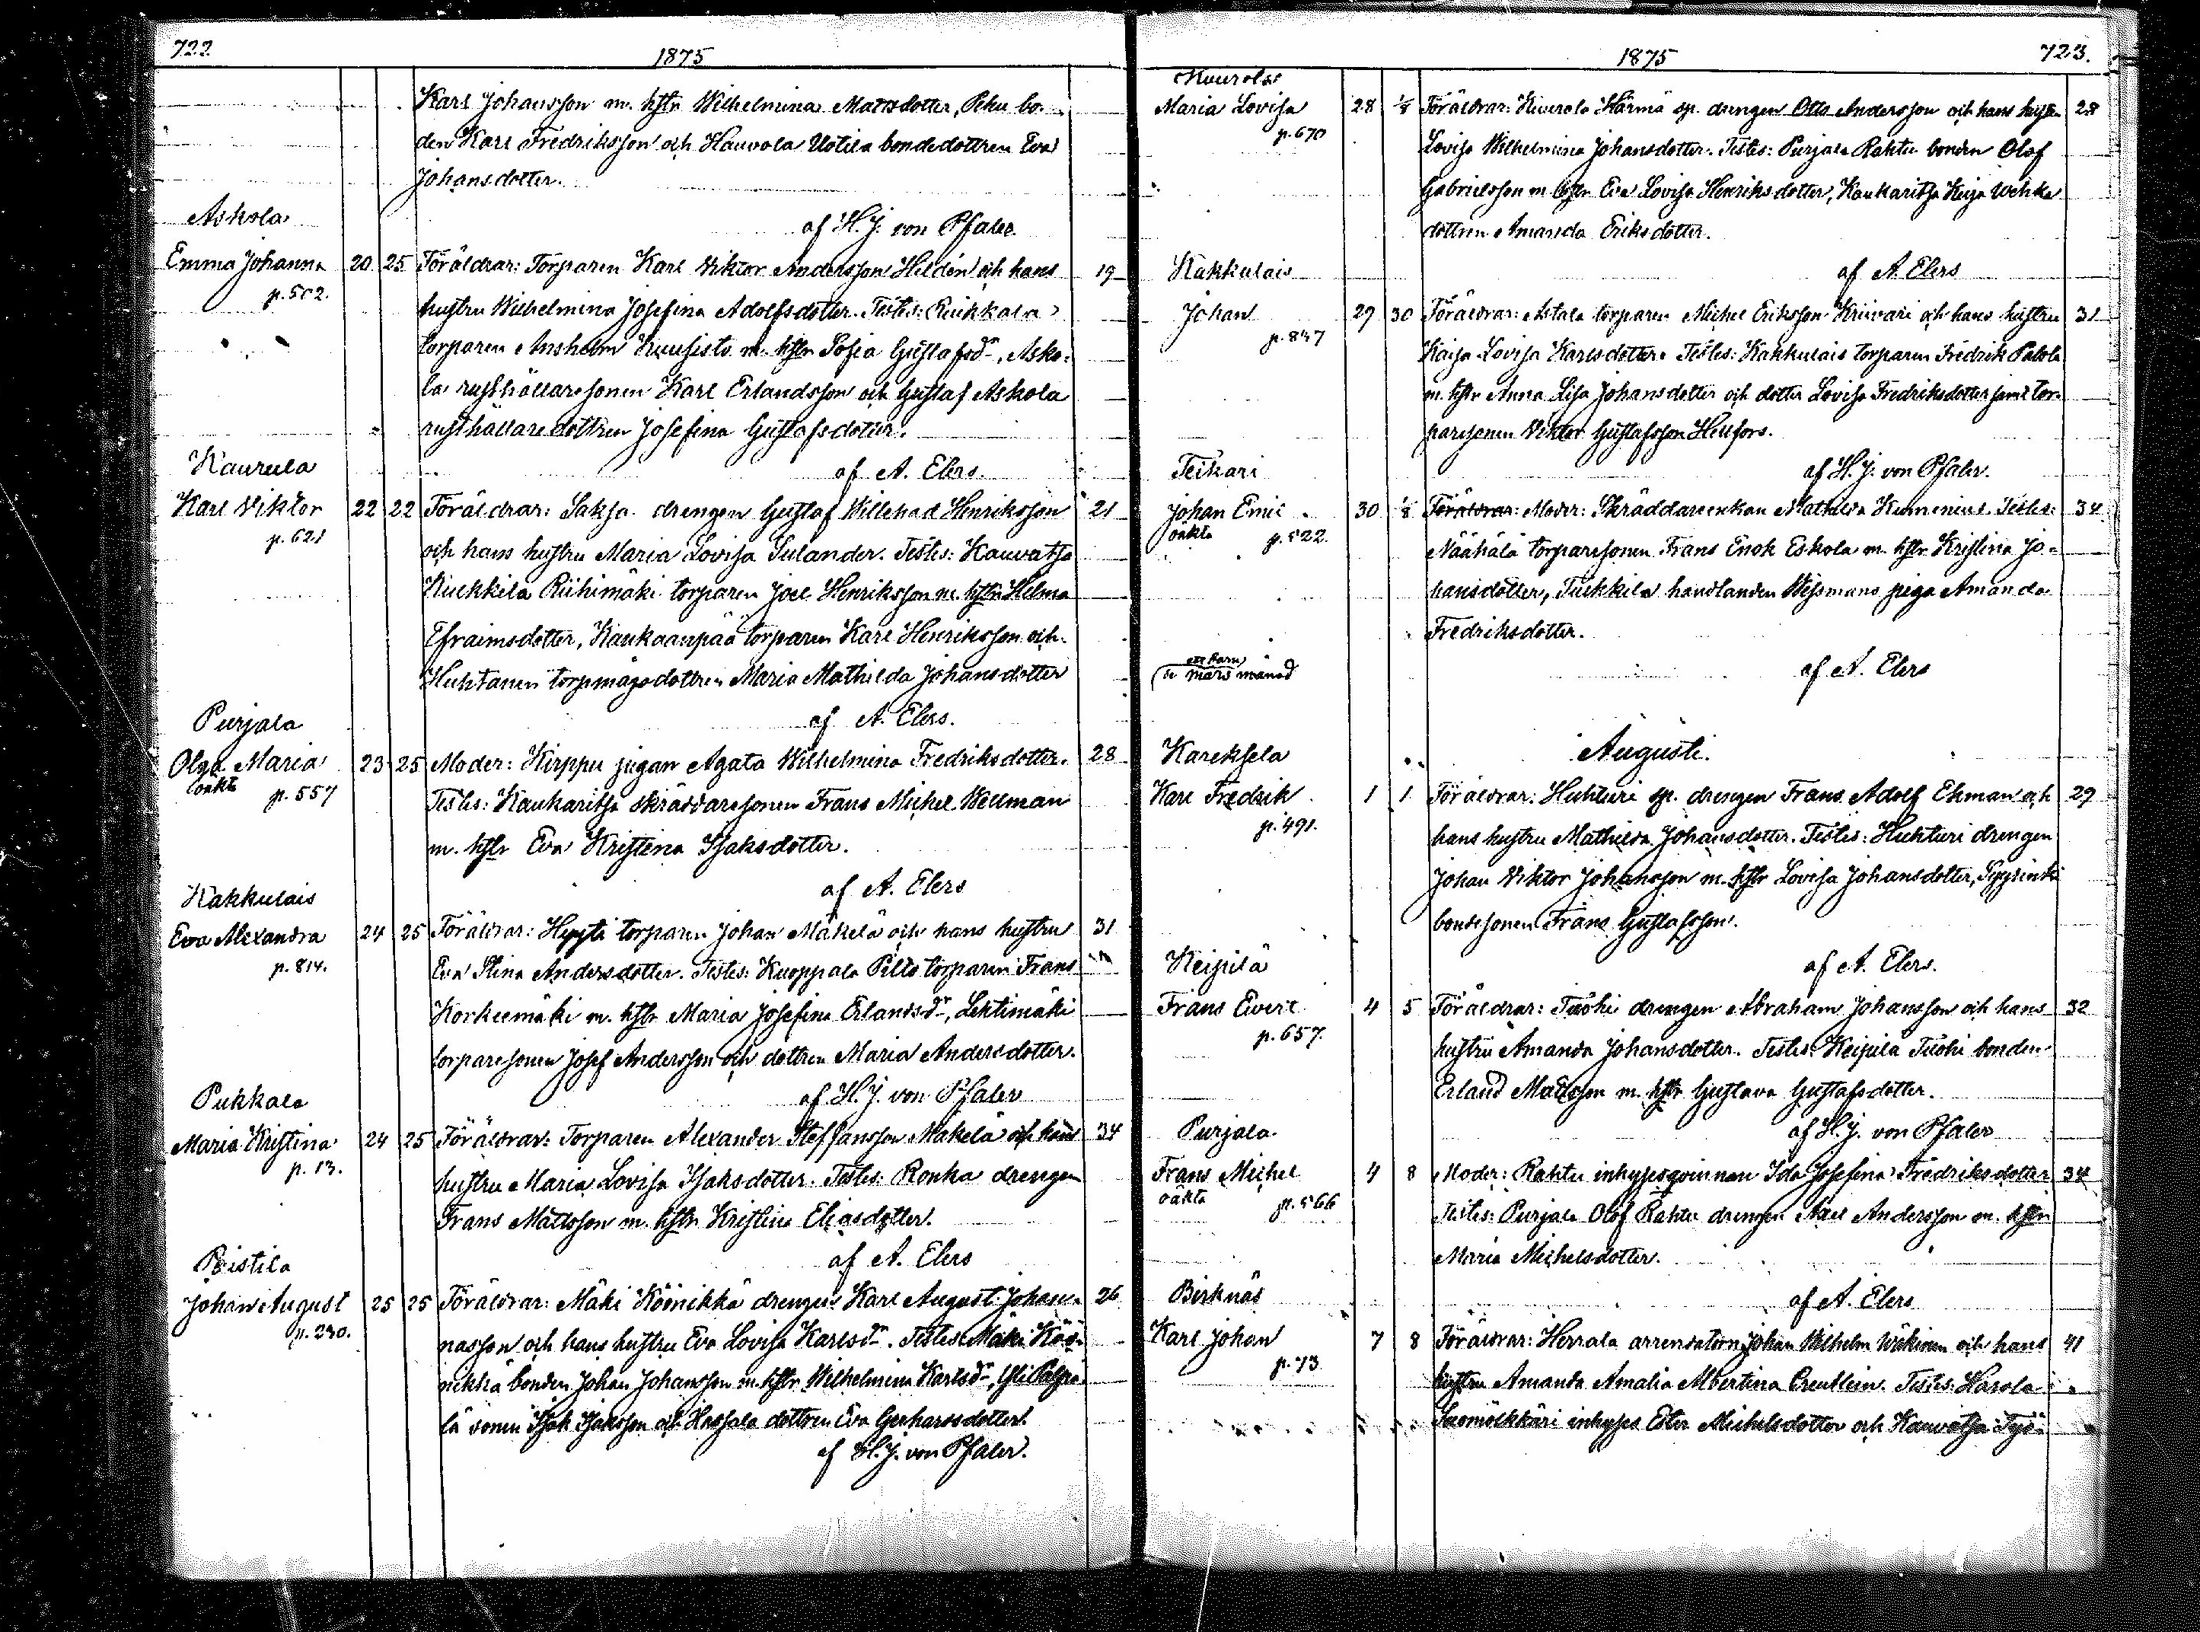 722
1875
Karl Johansson m. hstr Wilhelmina Mattsdotter, Peku bon-
den Karl Fredriksson och Kauvola Uotila bondedottren Eva
Johansdotter.
af H. J. von Pfaler
Askola
Emma Johanna 20 25 Föräldrar: Torparen Karl Viktor Andersson Heldén och hans 19
p. 502. hustru Wilhelmina Josefina Adolfsdotter. Testes: Ruikkala
torparen Anshelm Kuusisto m. hstr Sofia Gustafsdr, Asko-
la rusthållaresonen Karl Erlandsson och Gustaf Askola
rusthållaredottren Josefina Gustafsdotter.
af A. Elers.
Kaurula
Karl Viktor 22 22 Föräldrar: Saksa drengen Gustaf Willehad Henriksson 21
p. 621 och hans hustru Maria Lovisa Sulander. Testes: Kauvatsa
Kuckkila Riihimäki torparen Joel Henriksson m. hstr Hilma
Efraimsdotter, Kaukaanpää torparen Karl Henriksson och
Huhtanen torpmågsdottren Maria Mathilda Johansdotter
af A. Elers.
Purjala
Olga Maria 23 25 Moder: Kirppu pigan Agata Wilhelmina Fredriksdotter. 28
oäkta p. 557 Testes: Kaukaritsa skräddaresonen Frans Michel Wellman
m. hstr Eva Kristina Isaksdotter.
af A. Elers
Kakkulais
Eva Alexandra 24 25 Föräldrar: Hyyti torparen Johan Mäkelä och hans hustru 31
p. 814. Eva Stina Andersdotter. Testes: Kuoppala Pelto torparen Frans
Korkeemäki m. hstr Maria Josefina Erlandsdr, Lehtimäki
torparesonen Josef Andersson och dottren Maria Andersdotter.
af H. J. von Pfaler
Pukkala
Maria Kristina 24 25 Föräldrar: Torparen Alexander Steffansson Mäkelä och hans 34
p. 13. hustru Maria Lovisa Isaksdotter. Testes: Ronka drengen
Frans Mattsson m. hstr Kristina Eliasdotter.
af A. Elers
Ristila
Johan August 25 25 Föräldrar: Mäki Köönikkä drengen Karl August Johan- 26
p. 230. nasson och hans hustru Eva Lovisa Karlsdr. Testes: Mäki Köö-
nikkä bonden Johan Johansson m. hstr Wilhelmina Karlsdr,
lä sonen Isak Isaksson och Hassala dottren Eva Gerhardsdotter.
af H. J. von Pfaler.
1875
723.
Kuurola
Maria Lovisa 28 1/8 Föräldrar: Kuurola Härmä sp. drengen Otto Andersson och hans hustru 28
p. 670 Lovisa Wilhelmina Johansdotter. Testes: Purjala Rahtu bonden Olof
Gabrielsson m. hstr Eva Lovisa Henriksdotter, Kaukaritsa Keija
dottren Amanda Eriksdotter.
af A. Elers
Kakkulais
Johan 29 30 Föräldrar: Astala torparen Michel Eriksson Kriivari och hans hustru 31
p. 847 Kaisa Lovisa Karlsdotter. Testes: Kakkulais torparen Fredrik Palola
m. hstr Anna Lisa Johansdotter och dotter Lovisa Fredriksdotter samt tor-
paresonen Viktor Gustafsson Helifors.
af H. J. von Pfaler.
Teikari
Johan Emil 30 1/8 Föräldrar: Moder: Skräddareenkan Mathilda Kumenius. Testes: 34
oäkta p. 522. Näähälä torparesonen Frans Enok Eskola m. hstr Kristina Jo-
hansdotter, Tuikkila handlanden Wessmans piga Amanda
Fredriksdotter.
af A. Elers
ett barn
se mars månad
Augusti.
Kareksela
Karl Fredrik 1 1 Föräldrar: Huhtieri sp. drengen Frans Adolf Ekman och 29
p. 491. hans hustru Mathilda Johansdotter. Testes: Huhturi drengen
Johan Viktor Johansson m. hstr Lovisa Johansdotter,
bondesonen Frans Gustafsson.
af A. Elers.
Keipilä
Frans Evert 4 5 Föräldrar: Tuohi drengen Abraham Johansson och hans 32
p. 657. hustru Amanda Johansdotter. Testes: Keipilä Tuohi bonden
Erland Mattsson m. hstr Gustava Gustafsdotter.
af H. J. von Pfaler
Purjala
Frans Michel 4 8 Moder: Rahtu inhysesqvinnan Ida Josefina Fredriksdotter 34
oäkta p. 566 Testes: Purjala Olof Rahtu drengen Axel Andersson m. hstr
Maria Michelsdotter.
af A. Elers
Birknäs
Karl Johan 7 8 Föräldrar: Herrala arrendatorn Johan Wilhelm Wäkinen och hans 41
p. 73 hustru Amanda Amalia Albertina Creutlein. Testes: Harola
Suomölkkäri inhyses Ester Michelsdotter och Kauvatsa Työ-